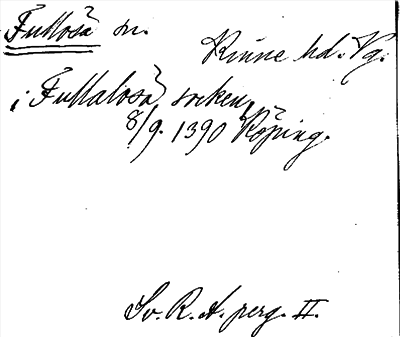 Fullösa sn.
Kinne hd. Vg.
i Fullalosa socken,
8/9. 1390 Köping.
Sv. R. A. perg. II.